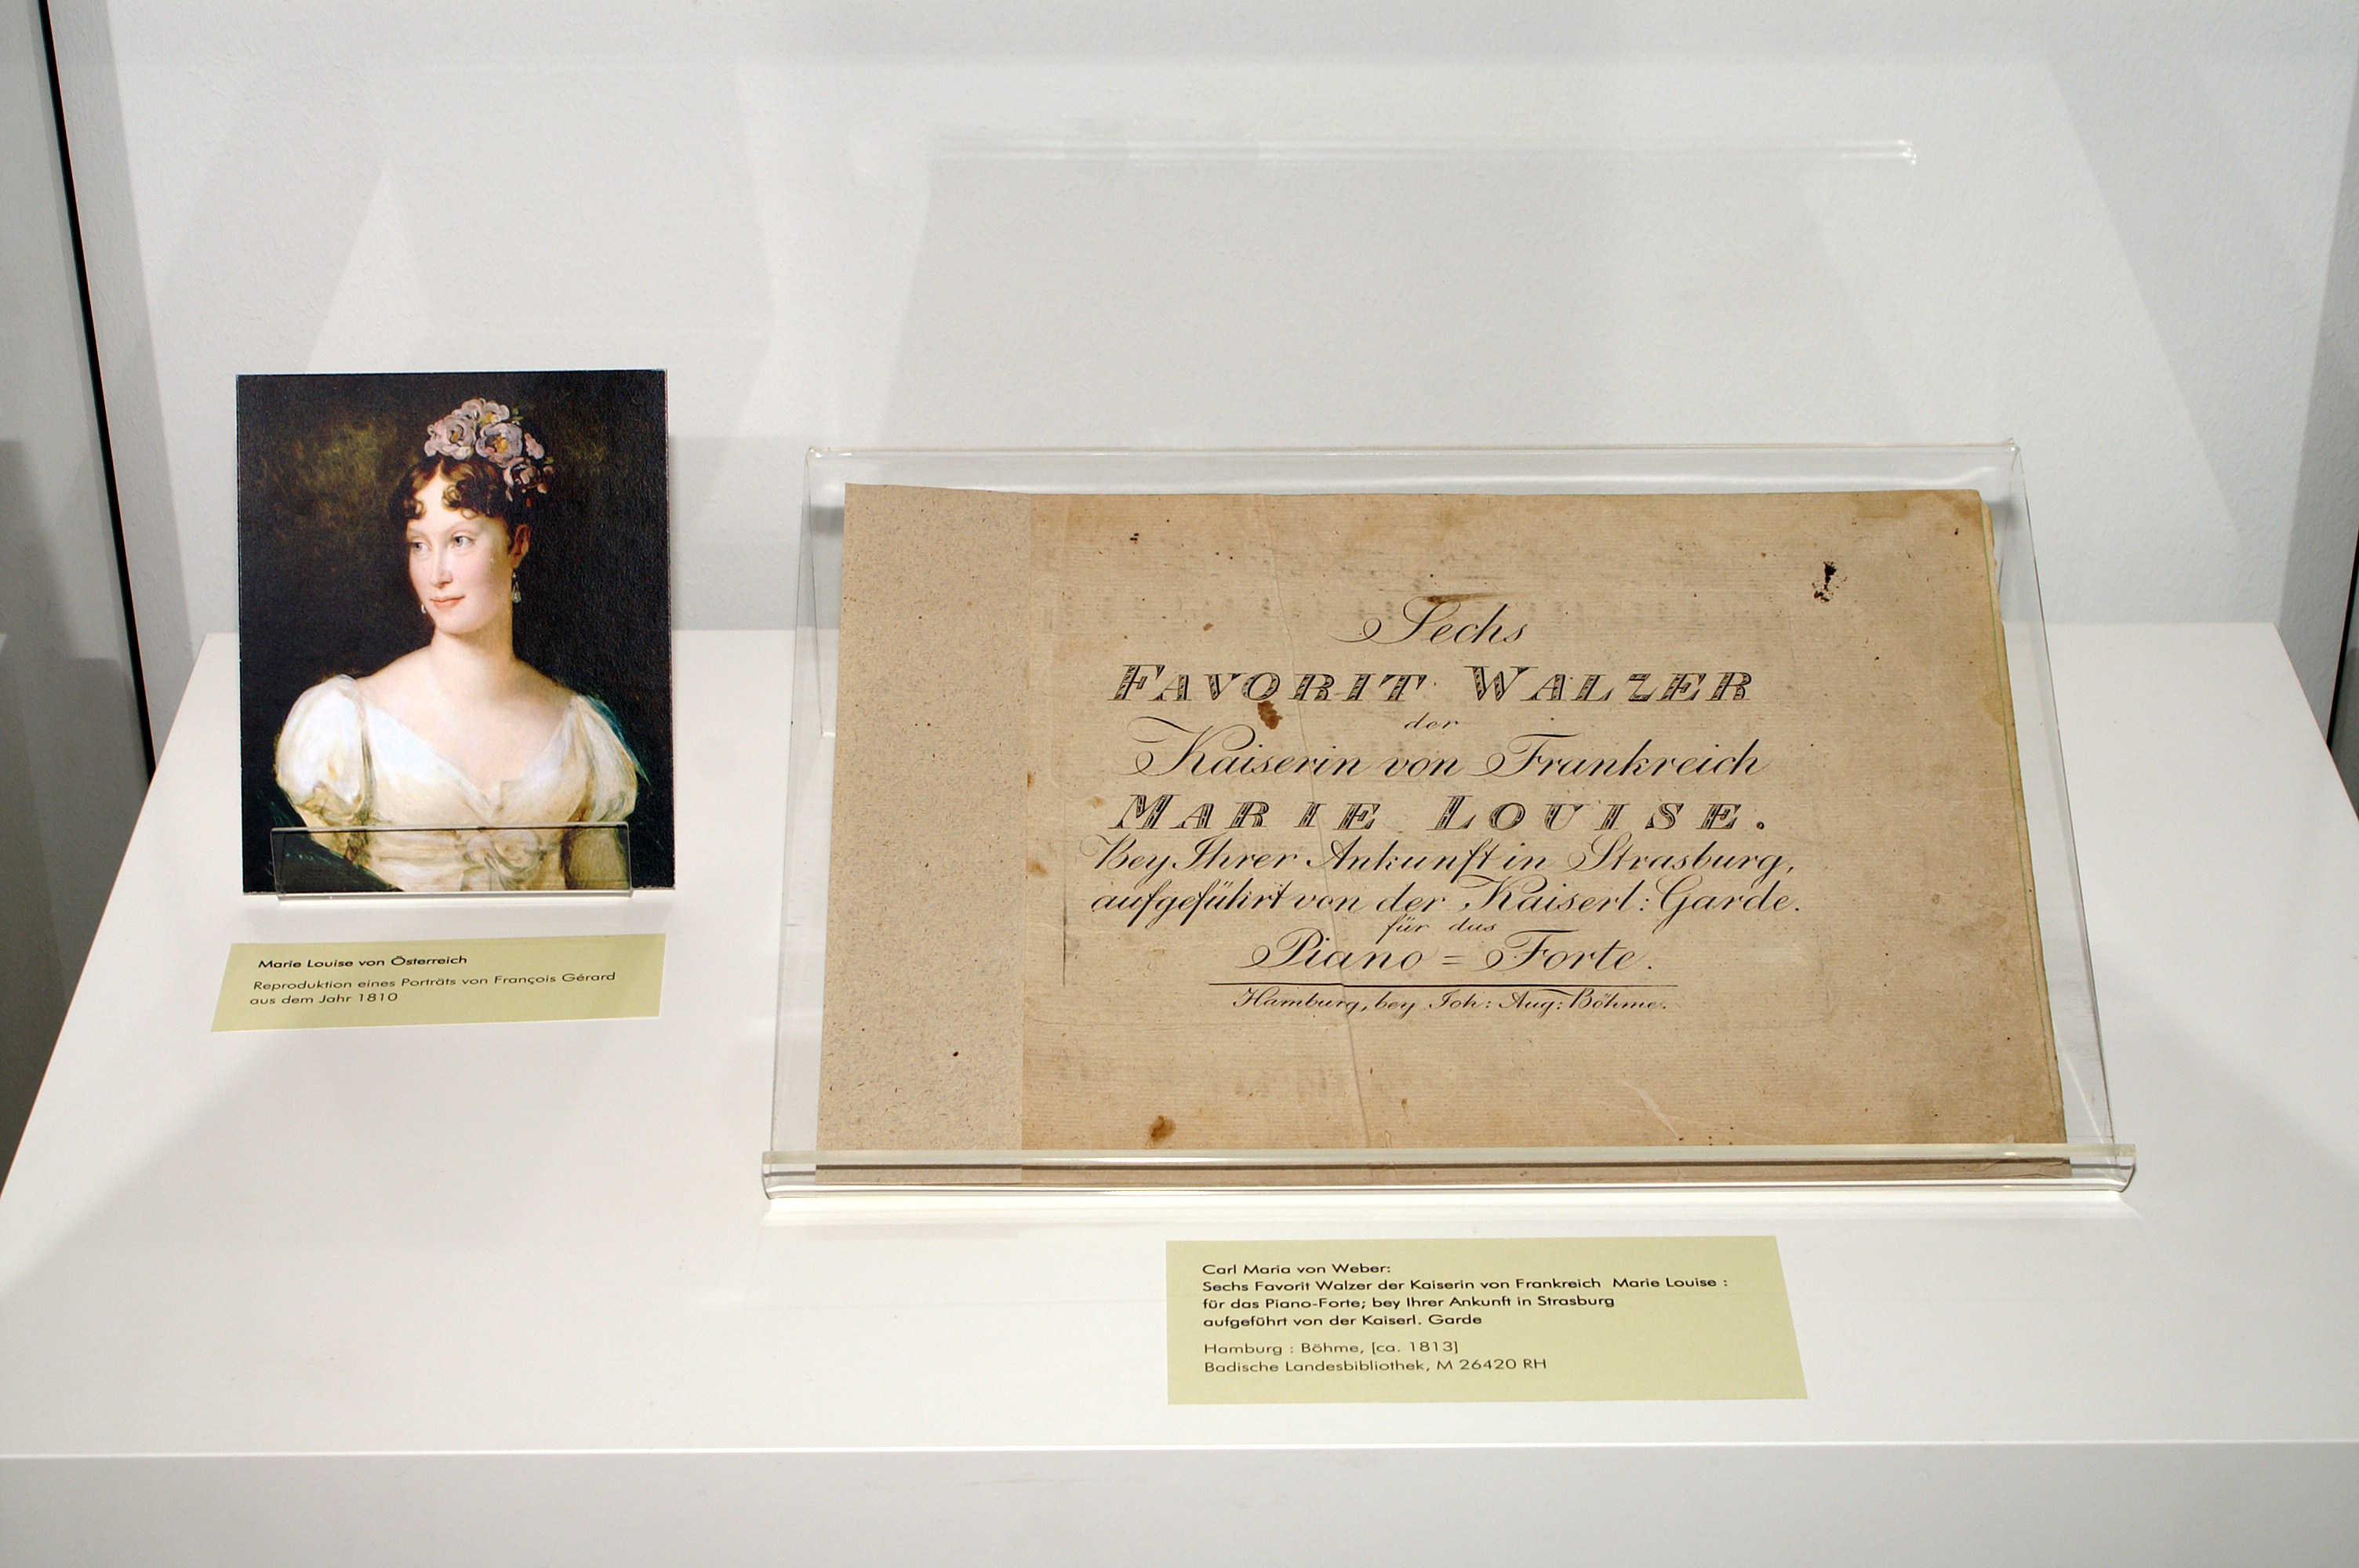 Marie Louise von Österreich
Reproduktion eines Porträts von François Gérard
aus dem Jahr 1810
Sechs
FAVORIT WALZER
der
Kaiserin von Frankreich
MARIE LOUISE.
Bey Ihrer Ankunft in Strasburg,
aufgeführt von der Kaiserl: Garde.
für das
Piano = Forte.
Hamburg, bey Joh: Aug: Böhme.
Carl Maria von Weber:
Sechs Favorit Walzer der Kaiserin von Frankreich Marie Louise :
für das Piano-Forte; bey Ihrer Ankunft in Strasburg
aufgeführt von der Kaiserl. Garde
Hamburg : Böhme, [ca. 1813]
Badische Landesbibliothek, M 26420 RH